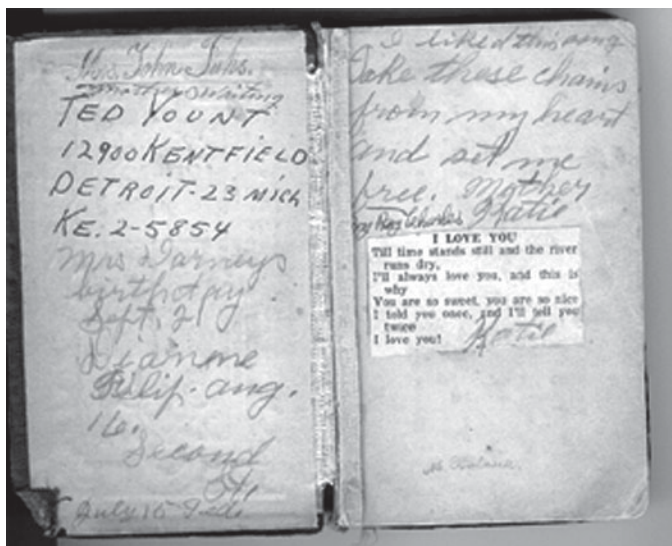 Mrs. John Fuhs.
Mother's Writing
TED YOUNT
12900 KENTFIELD
DETROIT-23 MICH
KE. 2-5854
Mrs
birthday
Sept. 21
Dianne
Filip. aug.
16.
Second
July 15 Ted.
I liked this song
Take these chains
from my heart
and set me
free. Mother
by Ray Charles Katie
I LOVE YOU
Till time stands still and the river
runs dry,
I'll always love you, and this is
why
You are so sweet, you are so nice
I told you once, and I'll tell you
twice
I love you! Katie